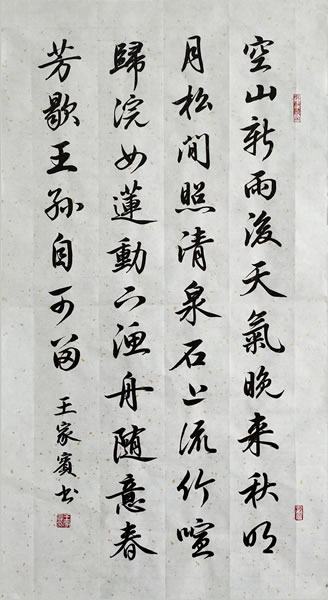 空山新雨後天氣晚来秋明
月松間照清泉石上流竹喧
歸浣女蓮動下渔舟随意春
芳歇王孫自可留
王家賓书